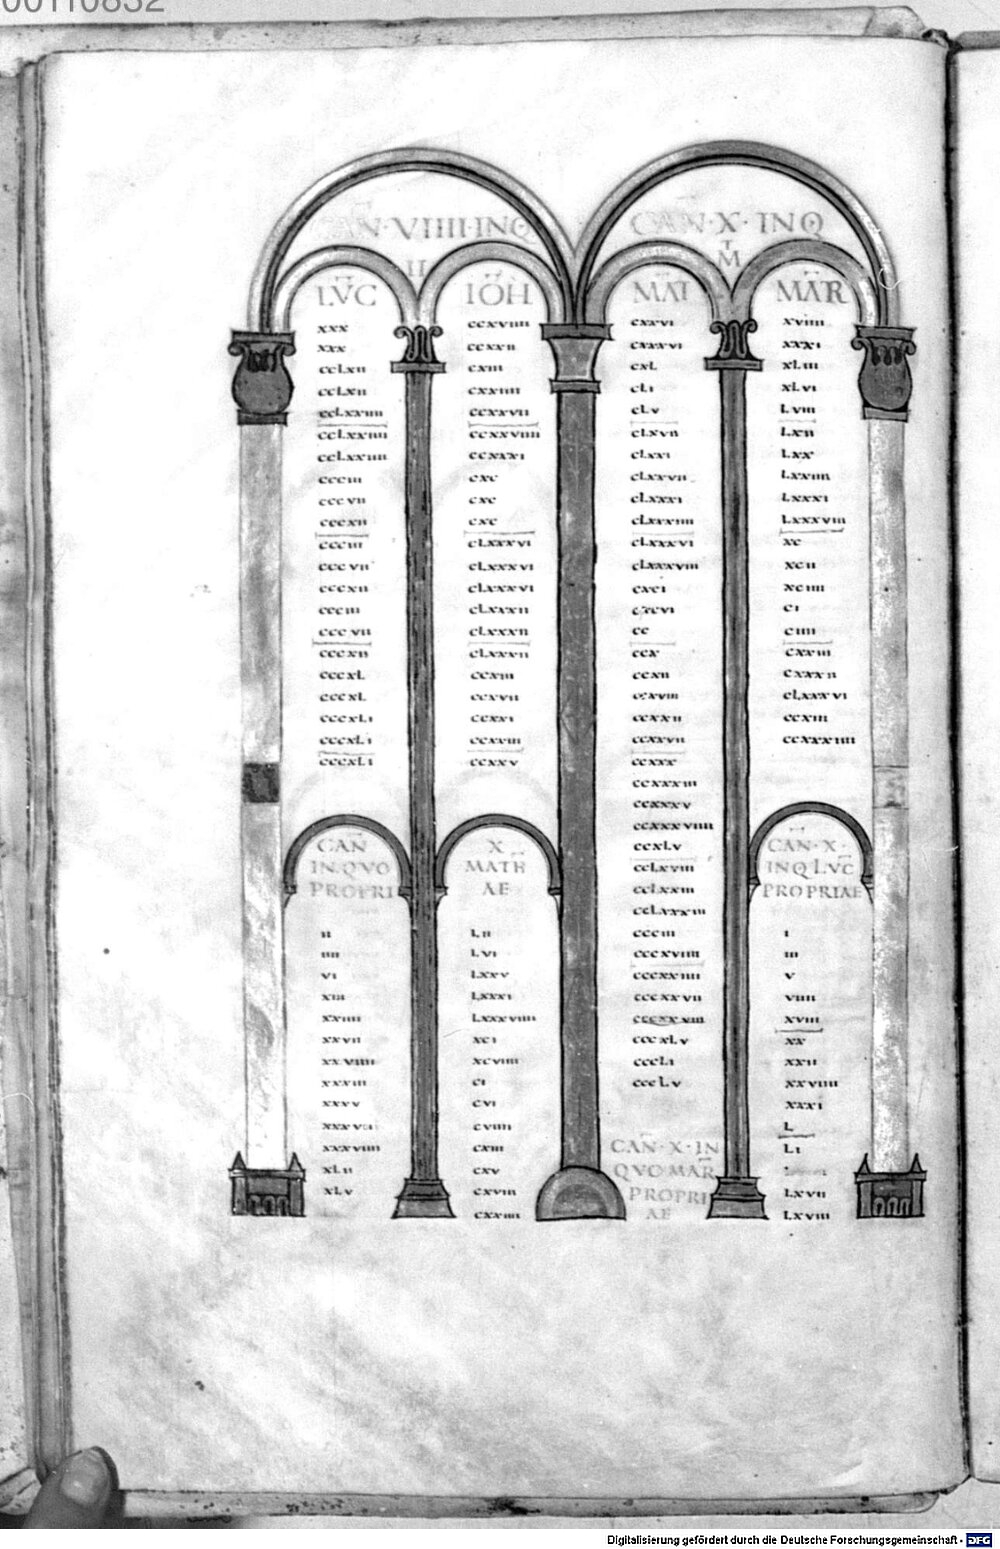 00110832
CAN·VIIII·INQ
II
LVC
xxx
xxx
ccLxii
ccLxii
ccLxxiiii
ccLxxiiii
ccLxxiiii
ccciii
cccvii
cccxii
ccciii
cccvii
cccxii
ccciii
cccvii
cccxii
cccxL
cccxL
cccxLi
cccxLi
cccxLi
IOH
ccxviiii
ccxxii
cxiii
cxxiiii
ccxxvii
ccxxviiii
ccxxxi
cxc
cxc
cxc
cLxxxvi
cLxxxvi
cLxxxvi
cLxxxii
cLxxxii
cLxxxii
ccxiii
ccxvii
ccxxi
ccxxiii
ccxxv
CAN
IN QVO
PROPRI
ii
iiii
vi
xiii
xxiiii
xxvii
xxviiii
xxxiii
xxxv
xxxviiii
xLii
xLv
X
MATH
AE
Lii
Lvi
Lxxv
Lxxxi
Lxxxviiii
xci
xcviiii
ci
cvi
cviiii
cxiii
cxv
cxviii
cxxiiii
CAN·X·INQ
T
M
MAT
cxxvi
cxxxvi
cxL
cLi
cLv
cLxvii
cLxxi
cLxxvii
cLxxxi
cLxxxiiii
cLxxxvi
cLxxxviii
cxci
cxcvi
cc
ccx
ccxii
ccxviii
ccxxii
ccxxvii
ccxxx
ccxxxiii
ccxxxv
ccxxxviiii
ccxLv
ccLxviii
ccLxxiii
ccLxxxiii
ccciii
cccxviiii
cccxxiiii
cccxxvii
cccxxviii
cccxLv
cccLi
cccLv
CAN·X·IN
QVO MAR
PROPRI
AE
MAR
xviiii
xxxi
xLiii
xLvi
Lviii
Lxii
Lxx
Lxxiiii
Lxxxi
Lxxxviiii
xc
xcii
xciiii
ci
ciiii
cxxiii
cxxxii
cLxxxvi
ccxiii
ccxxxiiii
CAN·X·
INQ LVC
PROPRIAE
i
iii
v
viiii
xviii
xx
xxii
xxviiii
xxxi
L
Li
Lxvii
Lxviii
Digitalisierung gefördert durch die Deutsche Forschungsgemeinschaft - DFG